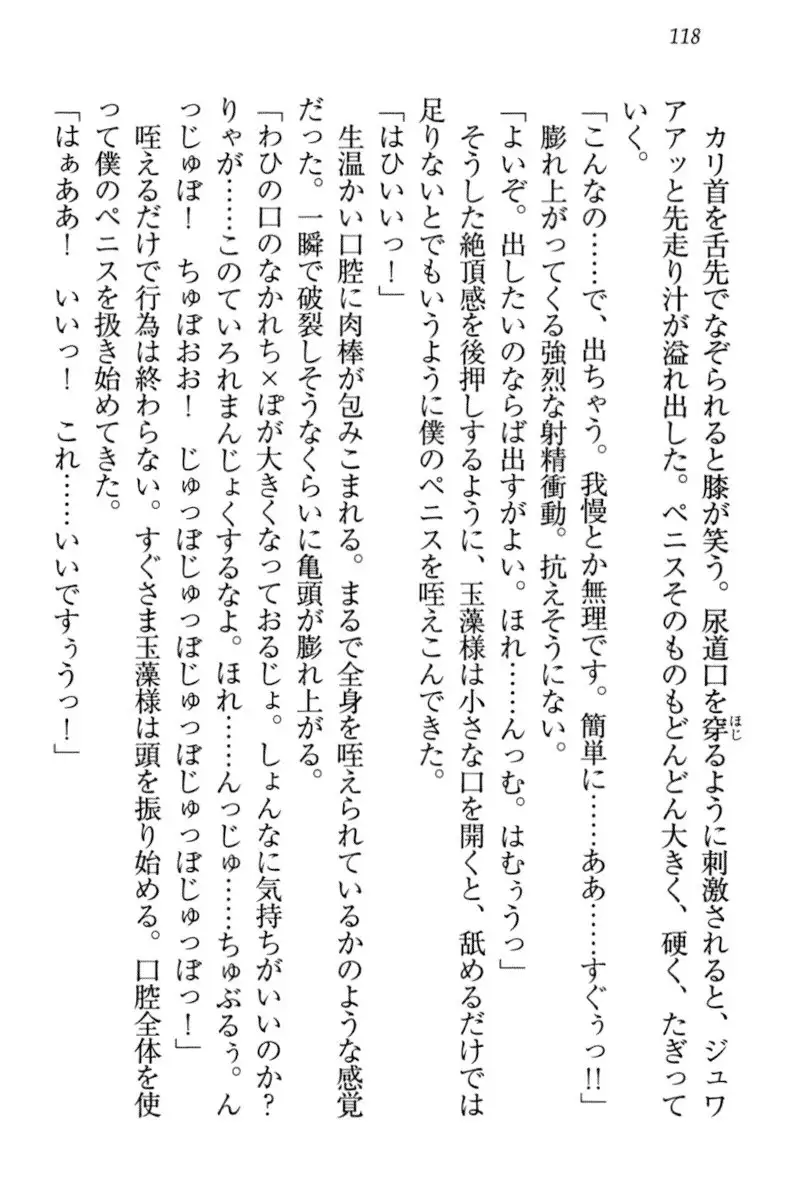 118
カリ首を舌先でなぞられると膝が笑う。尿道口を穿るように刺激されると、ジュワ
ほじ
アアッと先走り汁が溢れ出した。ペニスそのものもどんどん大きく、硬く、たぎって
いく。
「こんなの……で、出ちゃう。我慢とか無理です。簡単に……ああ……すぐぅっ!!」
膨れ上がってくる強烈な射精衝動。抗えそうにない。
「よいぞ。出したいのならば出すがよい。ほれ……んっむ。はむぅうっ」
そうした絶頂感を後押しするように、玉藻様は小さな口を開くと、舐めるだけでは
足りないとでもいうように僕のペニスを咥えこんできた。
「はひいいっ！」
生温かい口腔に肉棒が包みこまれる。まるで全身を咥えられているかのような感覚
だった。一瞬で破裂しそうなくらいに亀頭が膨れ上がる。
「わひの口のなかれち×ぽが大きくなっておるじょ。しょんなに気持ちがいいのか？
りゃが……このていろれまんじょくするなよ。ほれ……んっじゅ……ちゅぶるぅ。ん
っじゅぽ！　ちゅぽおお！　じゅっぽじゅっぽじゅっぽじゅっぽじゅっぽっ！」
咥えるだけで行為は終わらない。すぐさま玉藻様は頭を振り始める。口腔全体を使
って僕のペニスを扱き始めてきた。
「はぁああ！　いいっ！　これ……いいですぅうっ！」